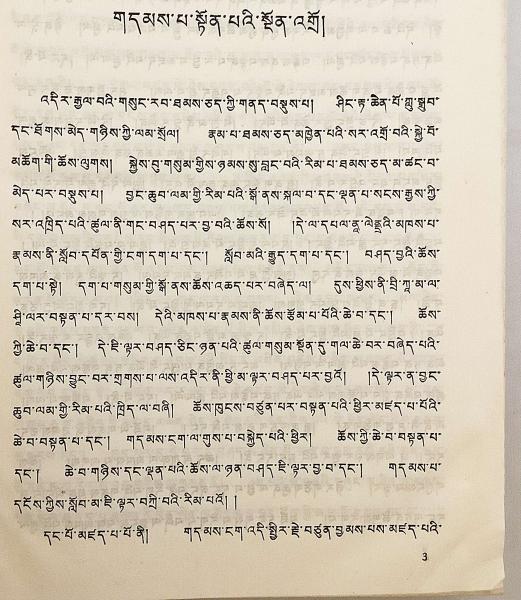 གདམས་པ་སྟོན་པའི་སྔོན་འགྲོ།
འདིར་རྒྱལ་བའི་གསུང་རབ་ཐམས་ཅད་ཀྱི་གནད་བསྡུས་པ། ཤིང་རྟ་ཆེན་པོ་ཀླུ་སྒྲུབ་
དང་ཐོགས་མེད་གཉིས་ཀྱི་ལམ་སྲོལ། རྣམ་པ་ཐམས་ཅད་མཁྱེན་པའི་སར་འགྲོ་བའི་སྐྱེ་བོ་
མཆོག་གི་ཆོས་ལུགས། སྐྱེས་བུ་གསུམ་གྱིས་ཉམས་སུ་བླང་བའི་རིམ་པ་ཐམས་ཅད་མ་ཚང་བ་
མེད་པར་བསྡུས་པ། བྱང་ཆུབ་ལམ་གྱི་རིམ་པའི་སྒོ་ནས་སྐལ་བ་དང་ལྡན་པ་སངས་རྒྱས་ཀྱི་
སར་འཁྲིད་པའི་ཚུལ་ནི་གང་བཤད་པར་བྱ་བའི་ཆོས་སོ། །དེ་ལ་དཔལ་ནཱ་ལེནྡྲའི་མཁས་པ་
རྣམས་ནི་སློབ་དཔོན་གྱི་ངག་དག་པ་དང་། སློབ་མའི་རྒྱུད་དག་པ་དང་། བཤད་བྱའི་ཆོས་
དག་པ་སྟེ། དག་པ་གསུམ་གྱི་སྒོ་ནས་ཆོས་འཆད་པར་བཞེད་ལ། དུས་ཕྱིས་ནི་བྲི་ཀཱ་མ་ལ་
ཤཱི་ལར་བསྟན་པ་དར་བས། དེའི་མཁས་པ་རྣམས་ནི་ཆོས་རྩོམ་པ་པོའི་ཆེ་བ་དང་། ཆོས་
ཀྱི་ཆེ་བ་དང་། དེ་ཇི་ལྟར་བཤད་ཅིང་ཉན་པའི་ཚུལ་གསུམ་སྔོན་དུ་གལ་ཆེ་བར་བཞེད་པའི་
ཚུལ་གཉིས་བྱུང་བར་གྲགས་པ་ལས་འདིར་ནི་ཕྱི་མ་ལྟར་བཤད་པར་བྱའོ། །དེ་ལྟར་ན་བྱང་
ཆུབ་ལམ་གྱི་རིམ་པའི་ཁྲིད་ལ་བཞི། ཆོས་ཁུངས་བཙུན་པར་བསྟན་པའི་ཕྱིར་མཛད་པ་པོའི་
ཆེ་བ་བསྟན་པ་དང་། གདམས་ངག་ལ་གུས་པ་བསྐྱེད་པའི་ཕྱིར། ཆོས་ཀྱི་ཆེ་བ་བསྟན་པ་
དང་། ཆེ་བ་གཉིས་དང་ལྡན་པའི་ཆོས་ལ་ཉན་བཤད་ཇི་ལྟར་བྱ་བ་དང་། གདམས་པ་
དངོས་ཀྱིས་སློབ་མ་ཇི་ལྟར་བཀྲི་བའི་རིམ་པའོ། །
དང་པོ་མཛད་པ་པོ་ནི། གདམས་ངག་འདི་སྤྱིར་རྗེ་བཙུན་བྱམས་པས་མཛད་པའི་
3